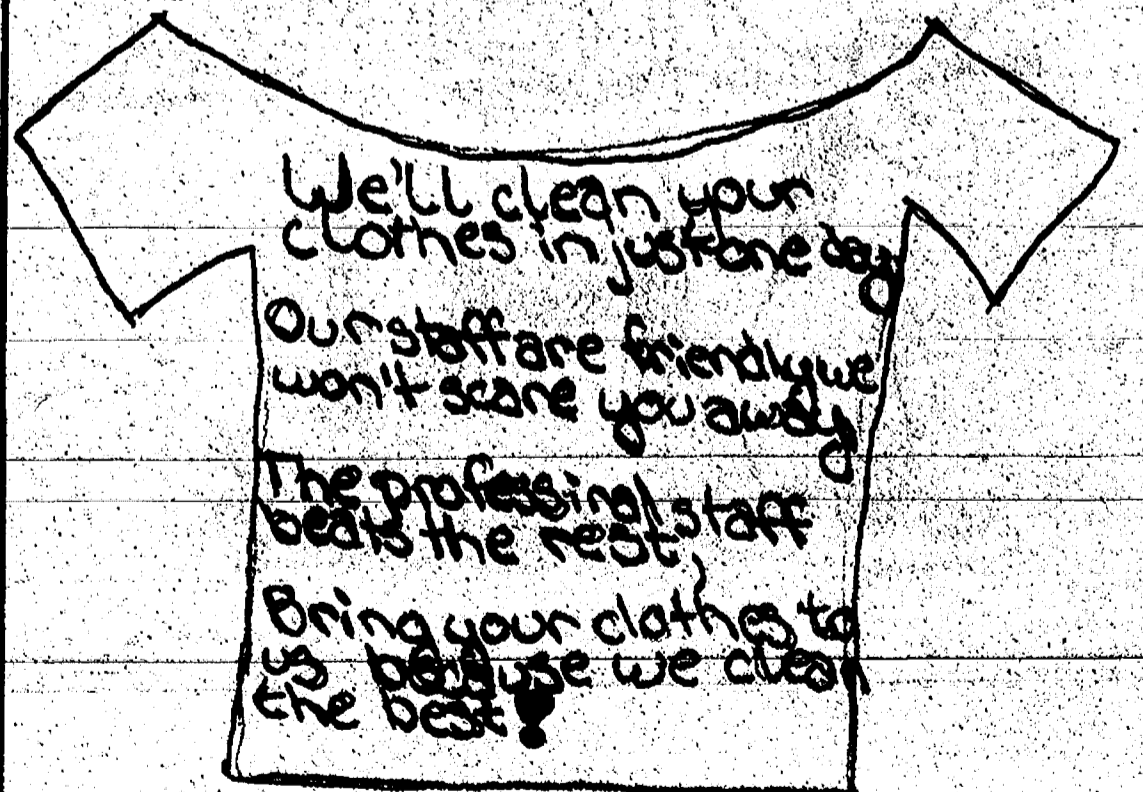 We'll clean your
clothes in just one day
Our staff are friendly we
won't scare you away
The professinal staff
beats the rest,
Bring your clothes to
us because we clean
the best!